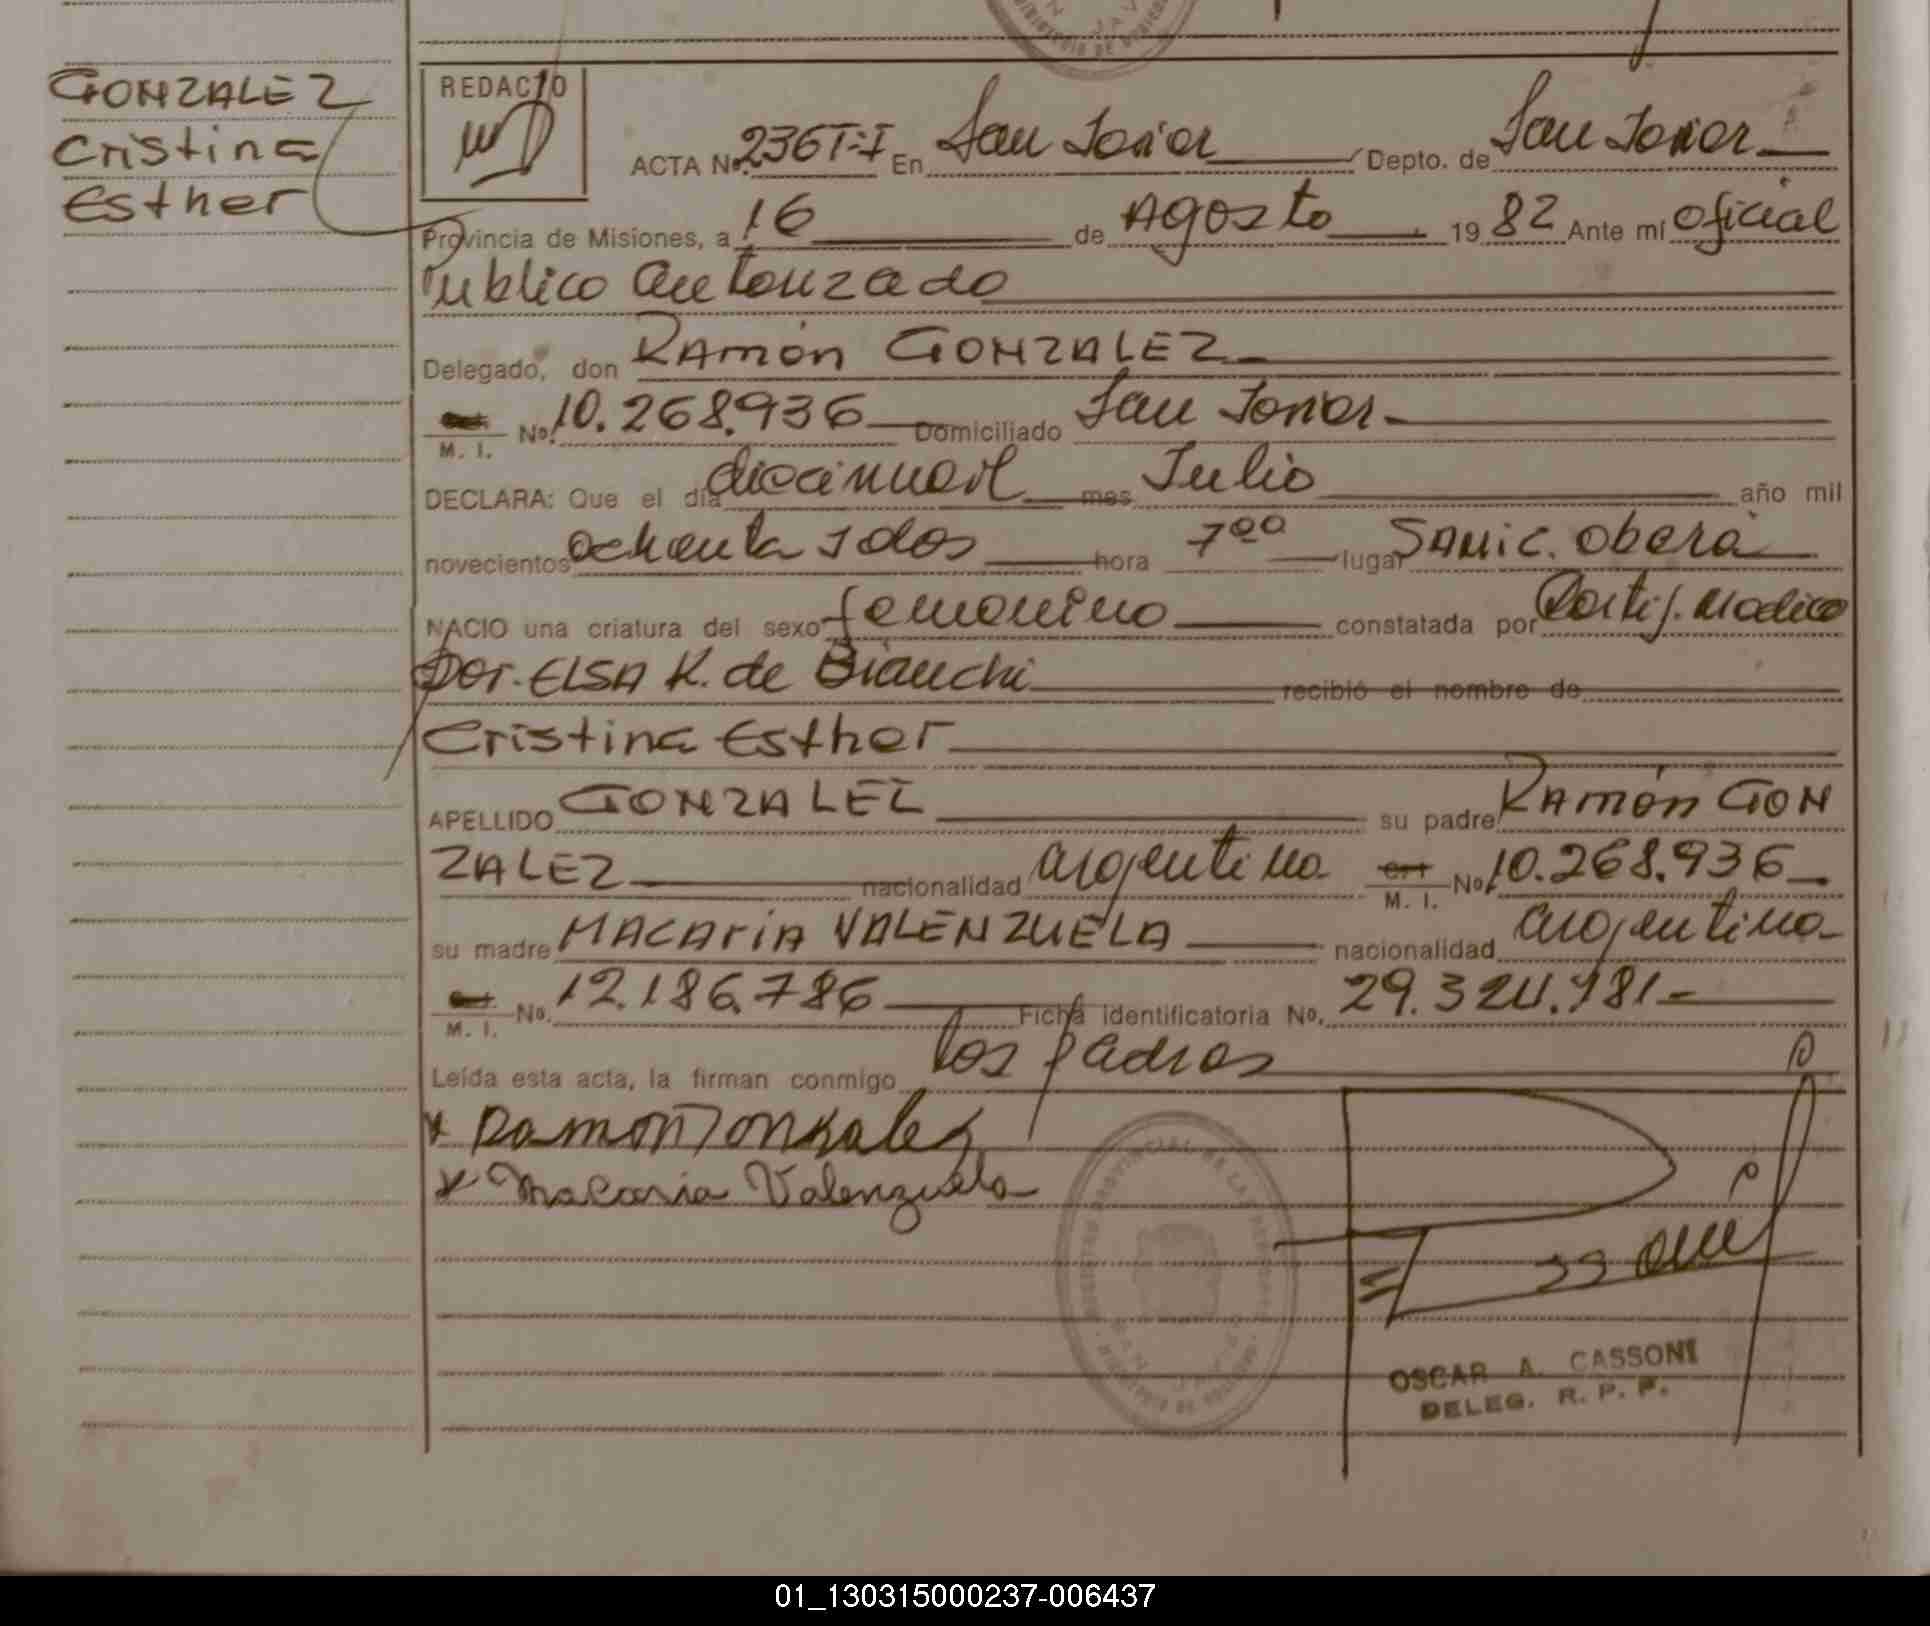 GONZALEZ
Cristina
Esther
REDACTO
ACTA No. 236 T-I En San Javier Depto. de San Javier
Provincia de Misiones, a 16 de Agosto 1982 Ante mí oficial
Publico autorizado
Delegado, don Ramón GONZALEZ
M. I. No. 10.268.936 Domiciliado San Javier
DECLARA: Que el día diecinueve mes Julio año mil
novecientos ochenta y dos hora 7oo lugar SAMIC. Oberá
NACIO una criatura del sexo femenino constatada por Certif. Medico
Dor. ELSA K. de Bianchi recibió el nombre de
Cristina Esther
APELLIDO GONZALEZ su padre Ramón GON
ZALEZ nacionalidad argentina M. I. No. 10.268.936
su madre MACARIA VALENZUELA nacionalidad argentina
M. I. No. 12.186.786 Ficha identificatoria No. 29.324.981
Leída esta acta, la firman conmigo los padres
x Ramon Gonzalez
x Macaria Valenzuela
OSCAR A. CASSONI
DELEG. R. P. P.
01_130315000237-006437